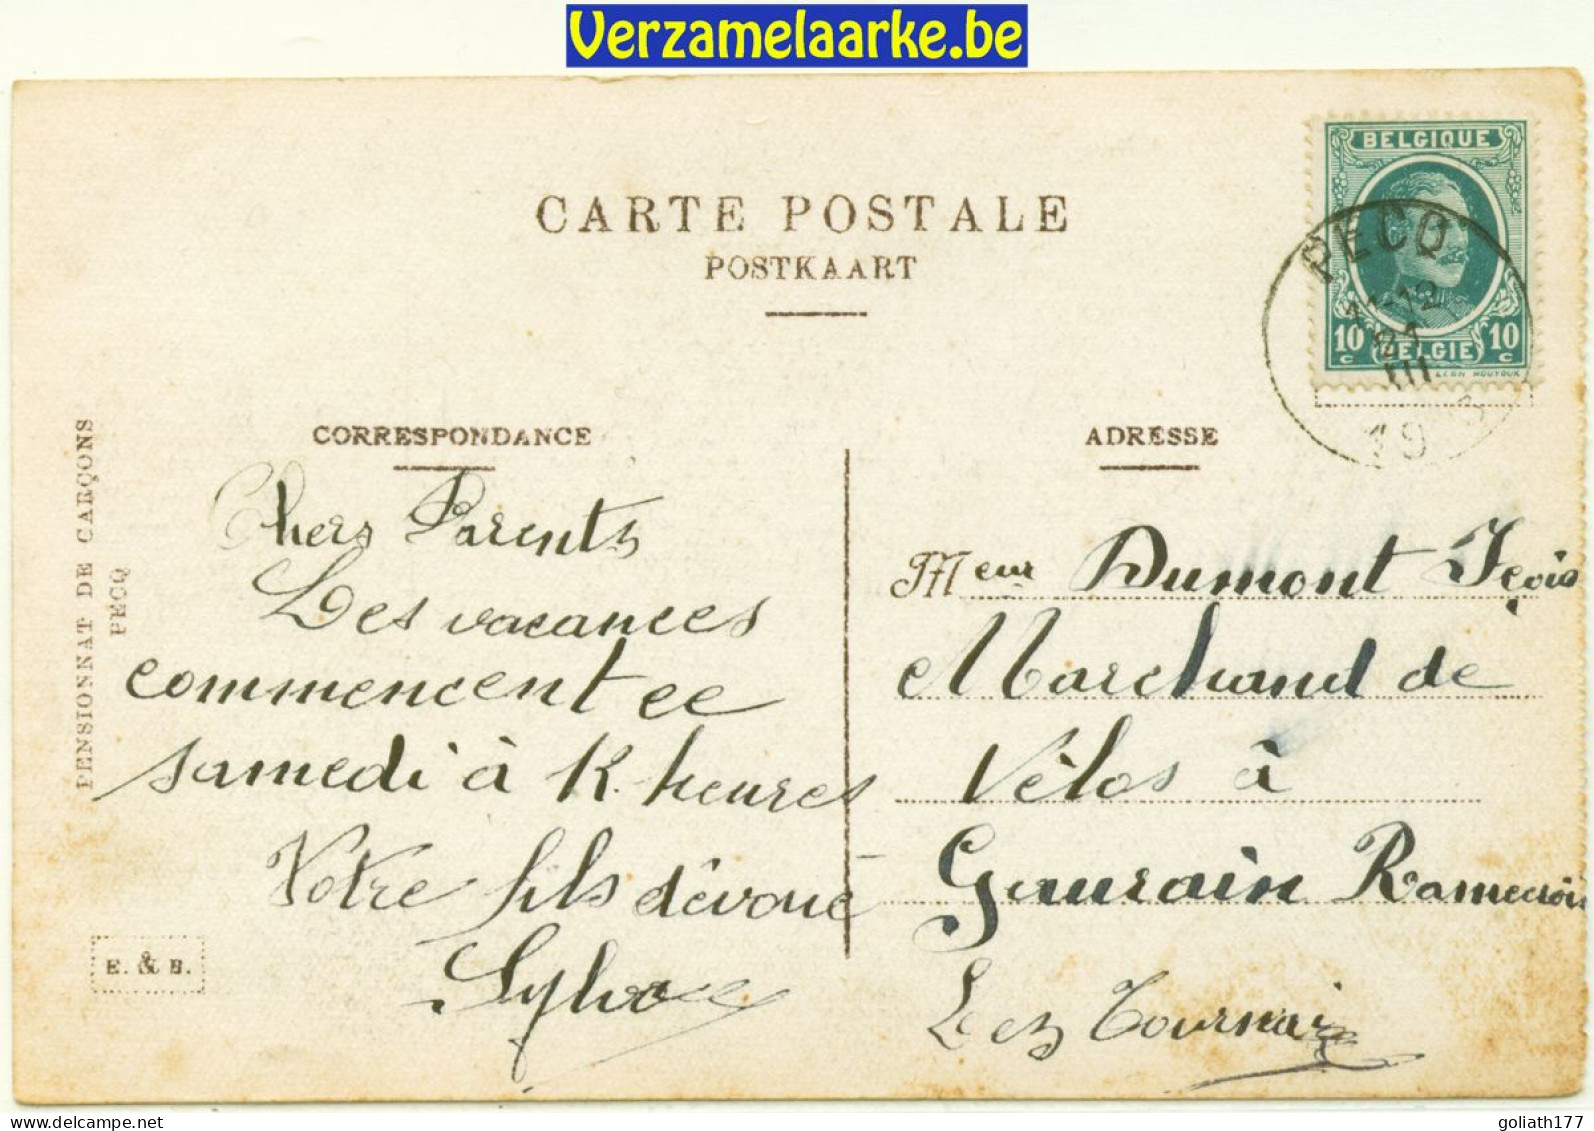 Verzamelaarke.be
CARTE POSTALE
POSTKAART
BELGIQUE
10 c BELGIE 10 c
LEON HOUYOUX
PECQ
11-12
21
III
19
PENSIONNAT DE GARÇONS
PECQ
CORRESPONDANCE
Chers Parents
Les vacances
commencent ce
samedi à 12 heures
Votre fils dévoué
Sylva
E. & B.
ADRESSE
Meur Dumont Fçois
Marchand de
Vélos à
Gaurain Ramecroix
Lez Tournai
goliath177